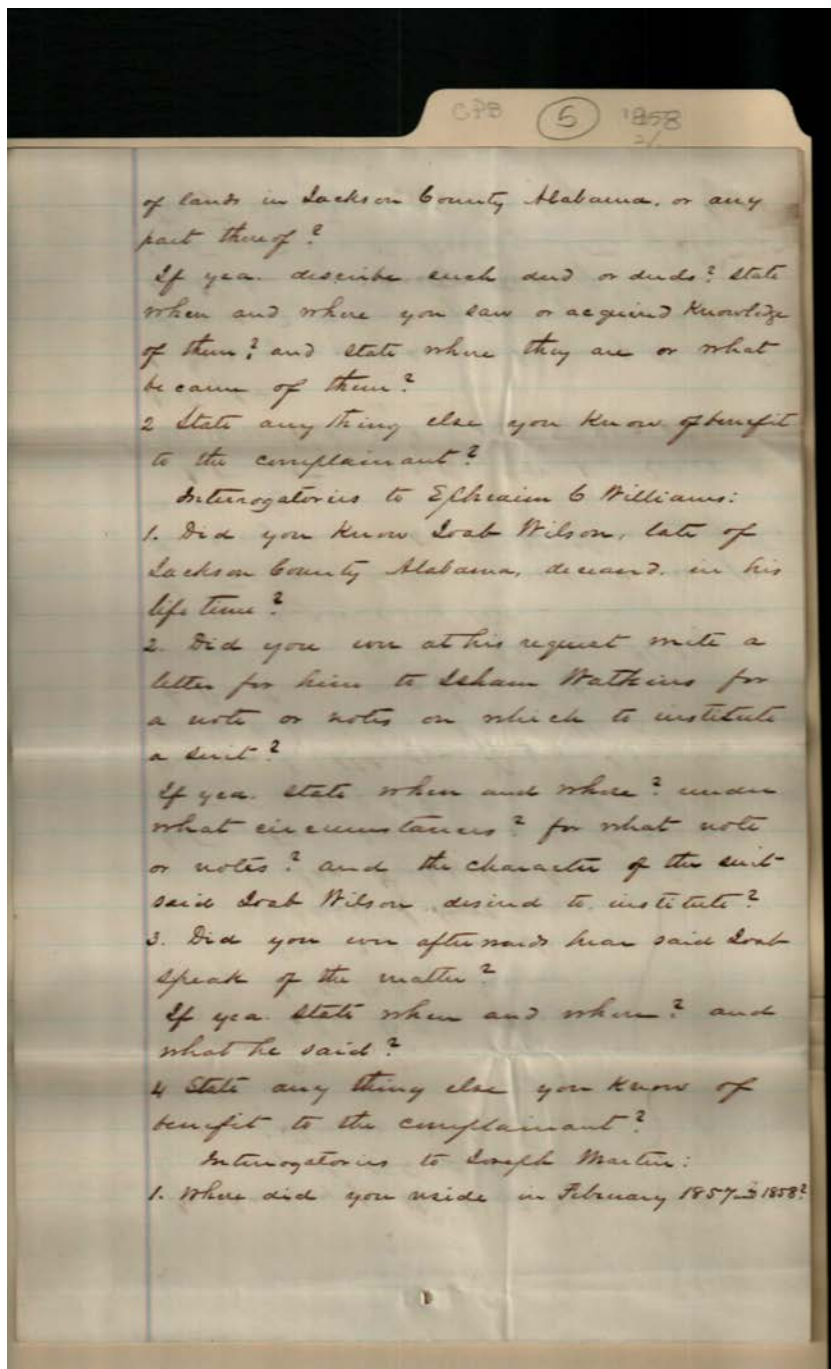 CPB 5 1858
2/
of lands in Jackson County Alabama, or any
part thereof?
If yea. describe such deed or deeds? state
when and where you saw or acquired Knowledge
of them? and state where they are or what
became of them?
2 State any thing else you Know of benefit
to the complainant?
Interrogatories to Ephraim C Williams:
1. Did you Know Joab Wilson, late of
Jackson County Alabama, deceased, in his
life time?
2. Did you ever at his request write a
letter for him to Isham Watkins for
a note or notes on which to institute
a suit?
If yea. state when and where? under
what circumstances? for what note
or notes? and the character of the suit
said Joab Wilson desired to institute?
3. Did you ever afterwards hear said Joab
speak of the matter?
If yea. State when and where? and
what he said?
4 State any thing else you Know of
benefit to the complainant?
Interrogatories to Joseph Martin:
1. Where did you reside in February 1857 and 1858?